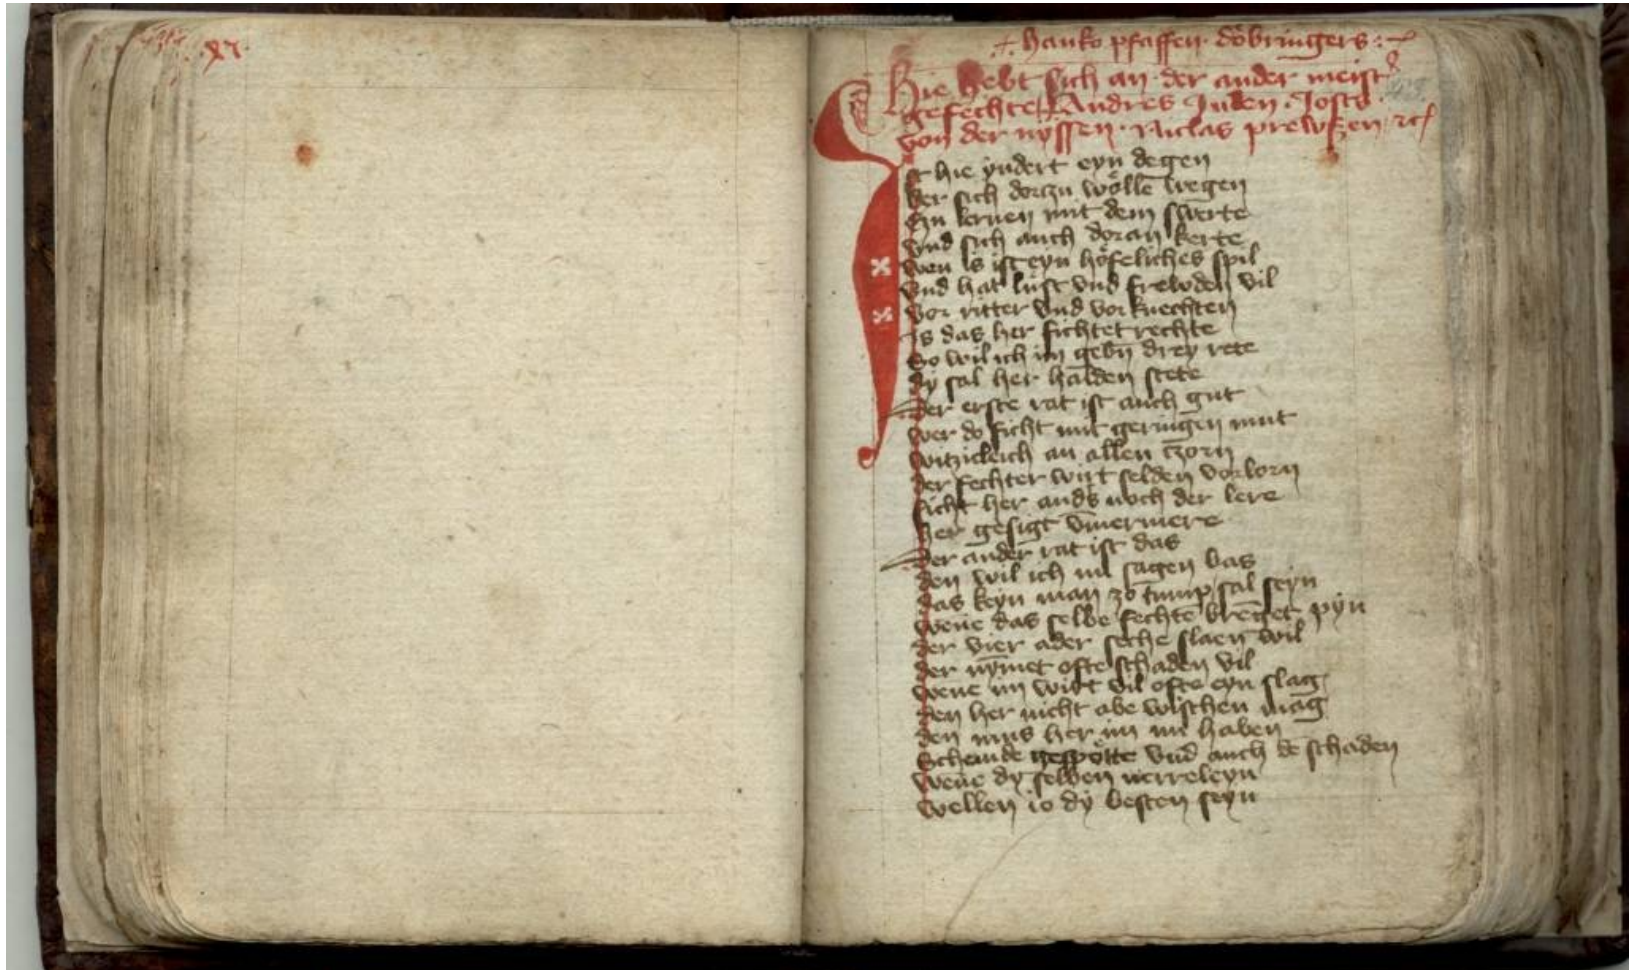 hanko pfaffen döbringers
Hie hebt sich an der ander meister
gefechte Andres Juden Josts
von der nyssen Niclas prewszen etc
Ist hie yndert eyn degen
der sich dorczu wölle wegen
Czu lernen mit dem swerte
vnd sich auch doran kerte
wen is ist eyn höfeliches spil
vnd hat lust vnd frewden vil
vor ritter vnd vor knechten
Is das her fichtet rechte
So wil ich im gebñ drey rete
dy sal her halden stete
Der erste rat ist auch gut
wer do ficht mit geringen mut
witzicleich an allen czorn
der fechter wirt selden vorlorn
ficht her anders noch der lere
her gesigt nummermere
Der ander rat ist das
den wil ich im sagen bas
das keyn man zo tump sal seyn
wene das selbe fechtē brenget pyn
der vier ader sechs slaen wil
der nymet ofte schaden vil
wene im wirt vil ofte eyn slag
den her nicht abe wischen mag
den mus her im nu haben
Schande gespötte vnd auch dē schaden
wene dy selben nerreleyn
wellen io dy besten seyn